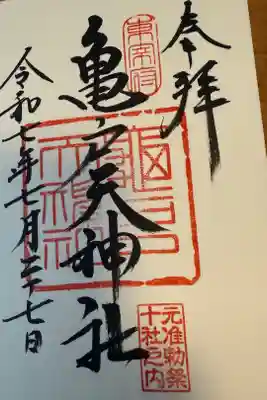 奉拝
東宰府
亀戸天神社
元准勅祭
十社之内
令和七年七月二十七日